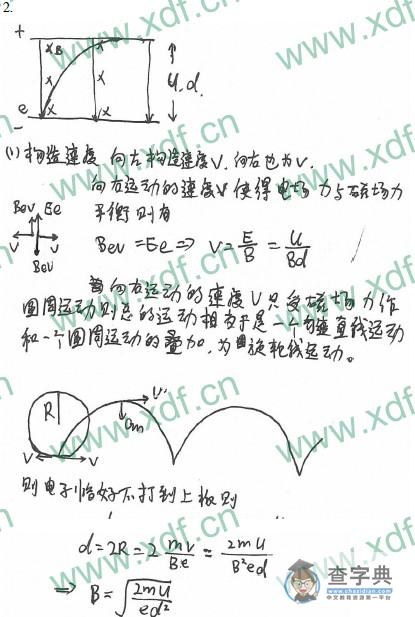 2.
+
x B x
x x
x x
e
-
u.d.
(1) 构造速度 向左构造速度V, 向右也为V.
向右运动的速度V使得电场力与磁场力
平衡则有
Bev Ee
V V
Bev
Bev = Ee ⇒ V = E/B = u/Bd
向右运动的速度V只受磁场力作
圆周运动则总的运动相当于是一个匀速直线运动
和一个圆周运动的叠加, 为旋轮线运动。
R
V V
V'
am
则电子恰好不打到上板则
d = 2R = 2 mv/B.e = 2mu/B²ed
⇒ B = √(2mu/ed²)
www.xdf.cn
www.xdf.cn
www.xdf.cn
www.xdf.cn
查字典
www.chazidian.com
中文教育资源第一平台